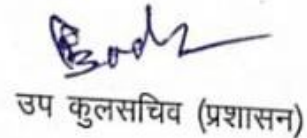 उप कुलसचिव (प्रशासन)